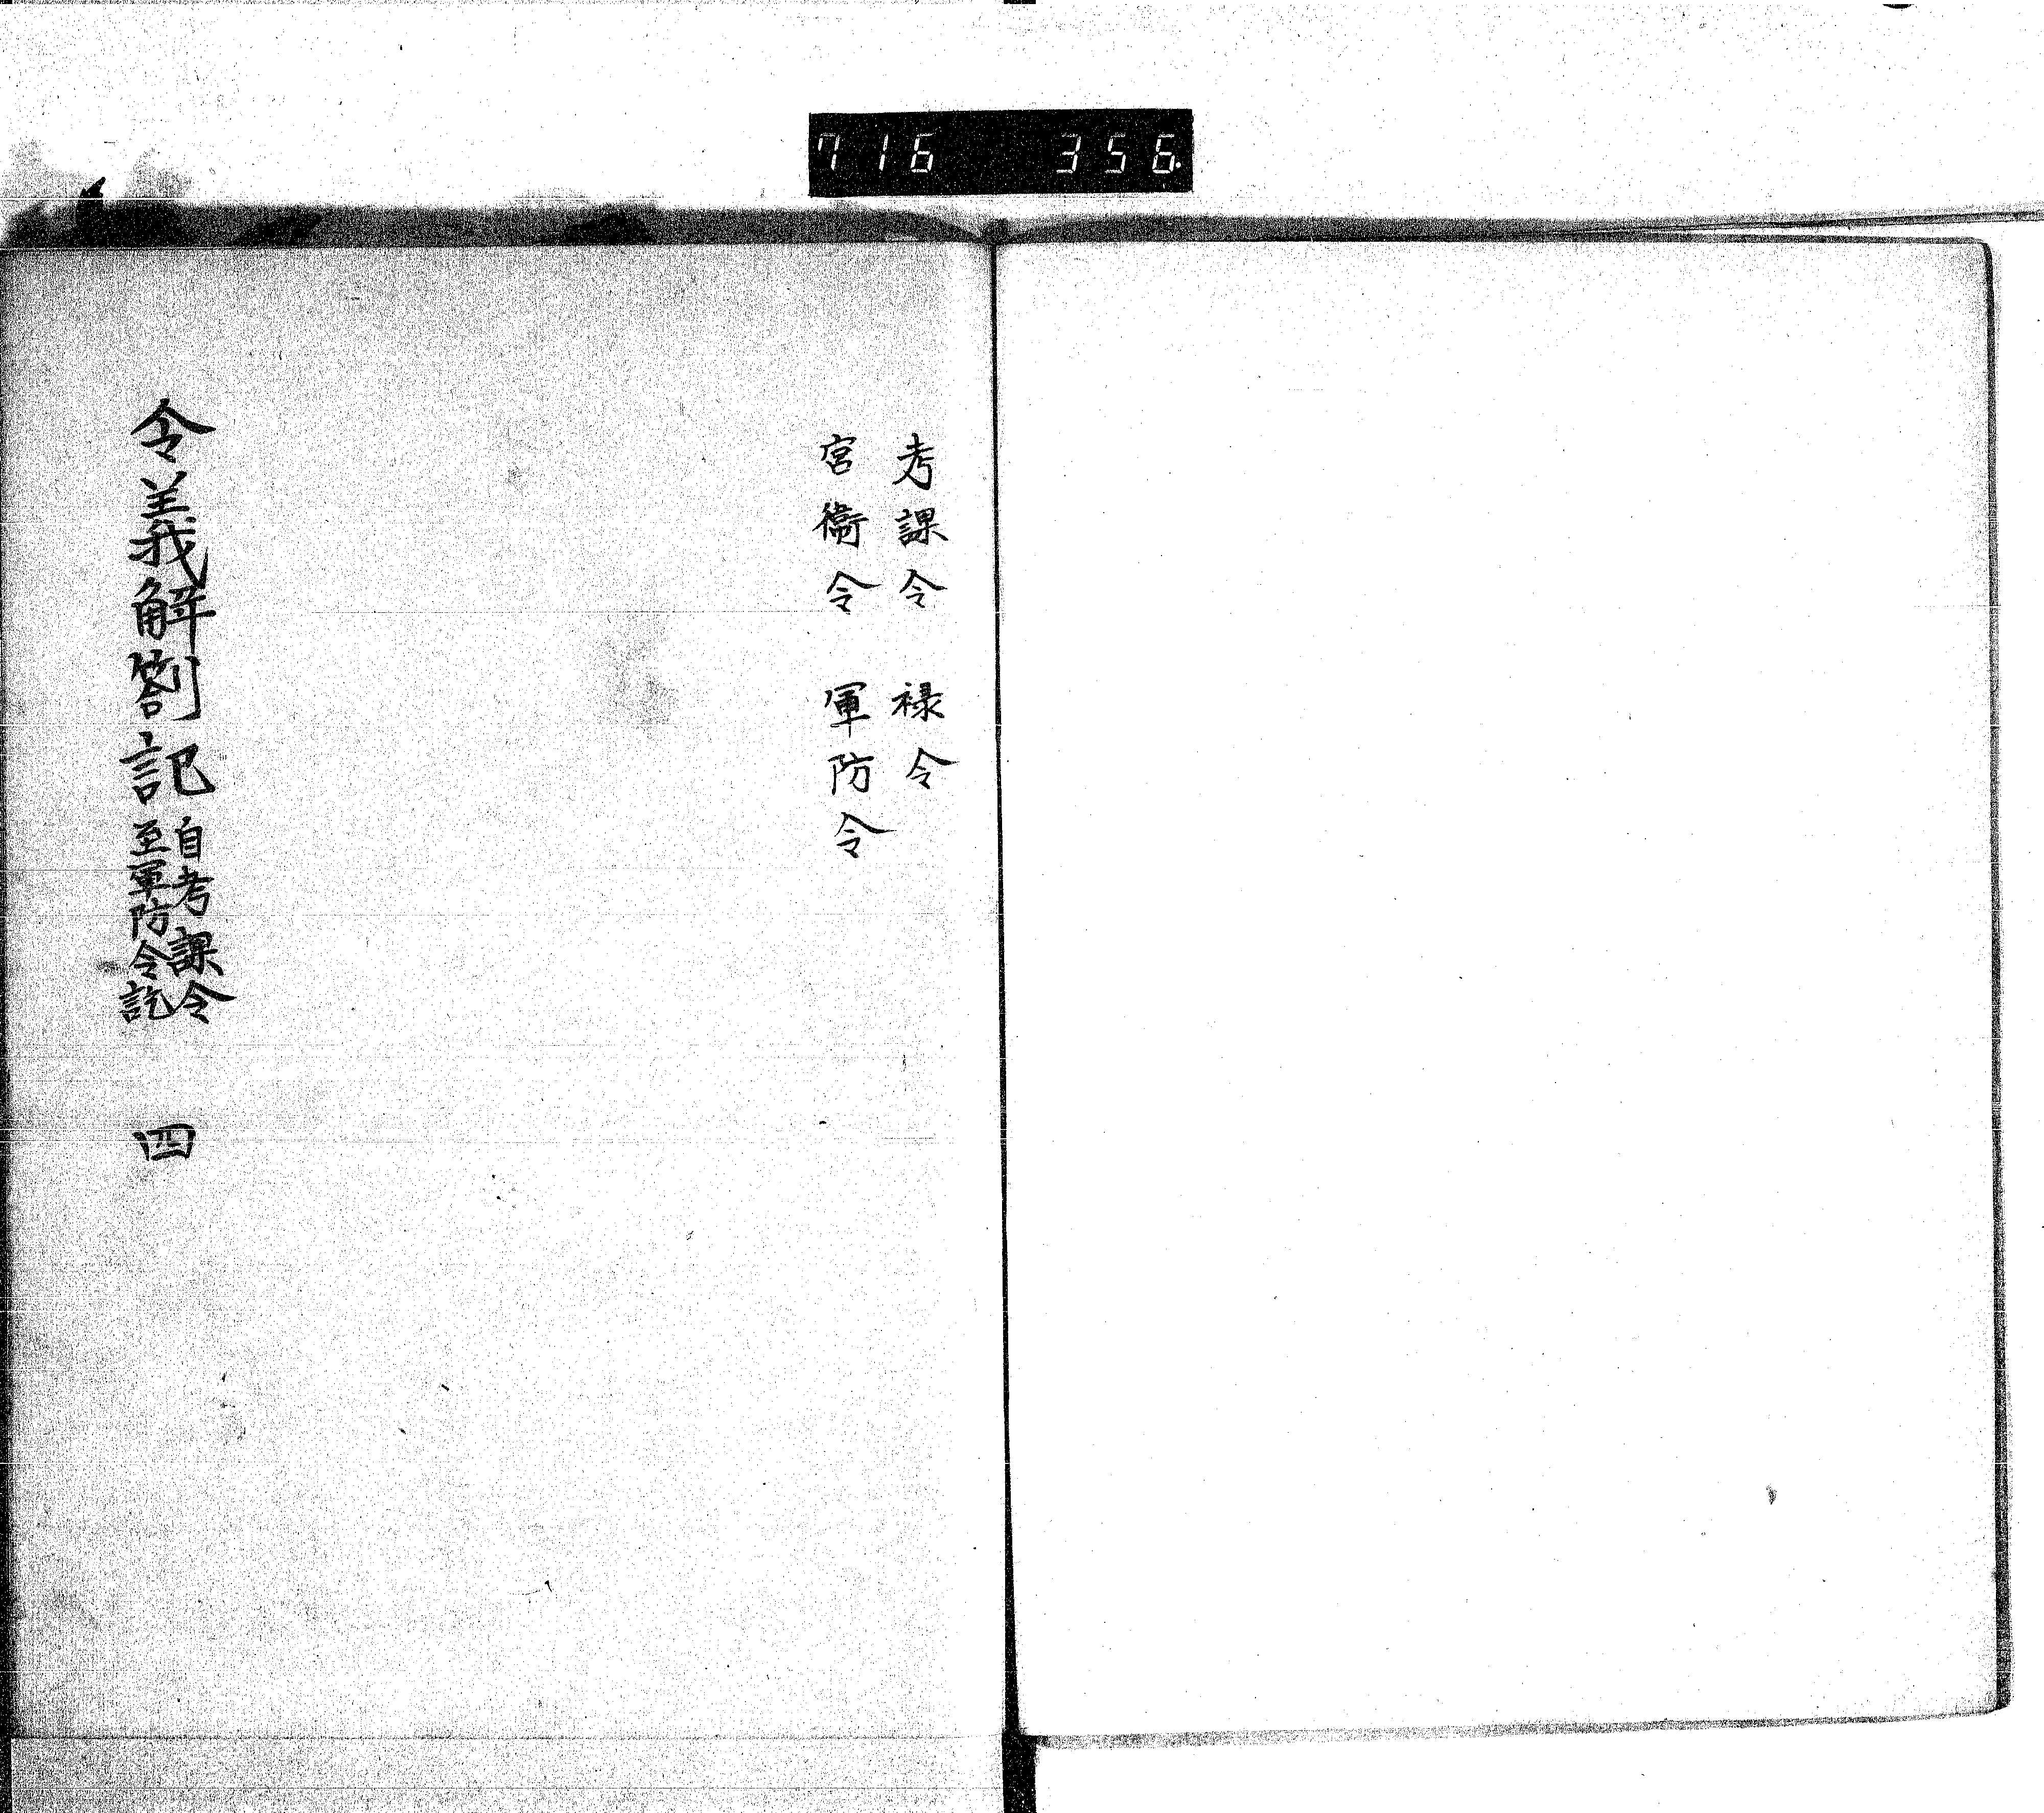 716 356.
考課令 禄令
宮衞令 軍防令
令義解劄記 自考課令
至軍防令訖 四